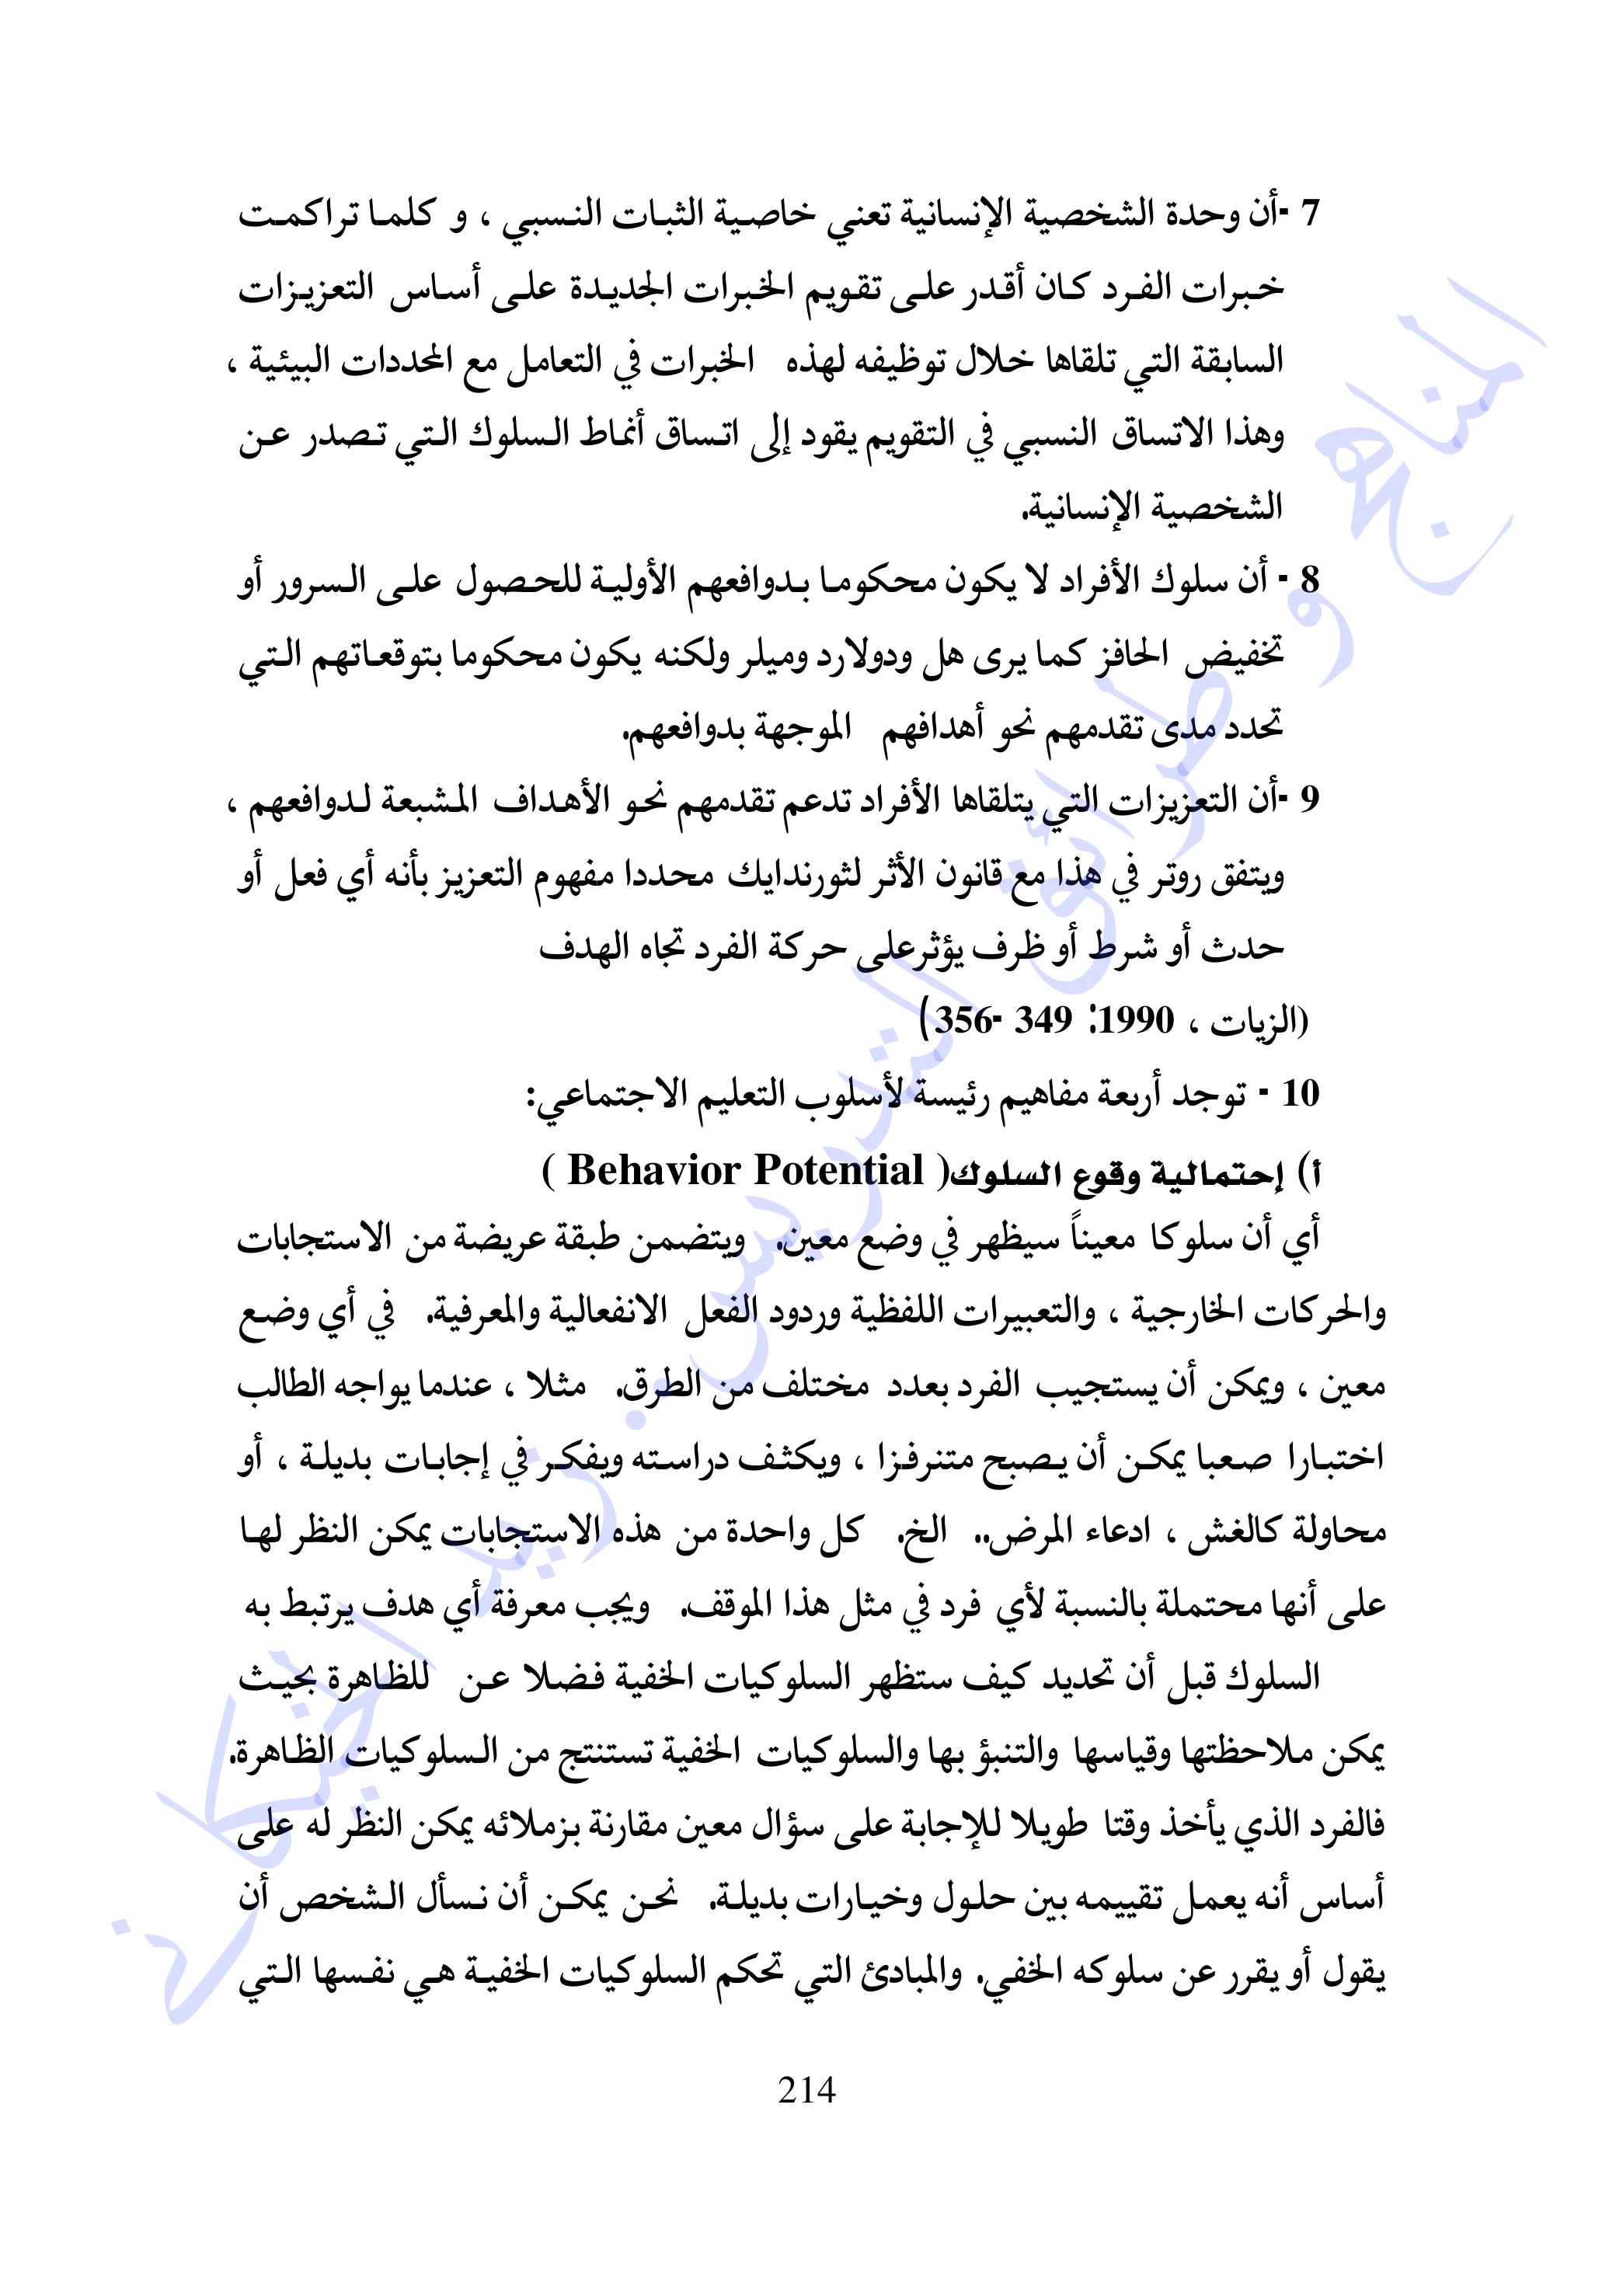 7 -أن وحدة الشخصية الإنسانية تعني خاصية الثبات النسبي ، و كلما تراكمت
خبرات الفرد كان أقدر على تقويم الخبرات الجديدة على أساس التعزيزات
السابقة التي تلقاها خلال توظيفه لهذه الخبرات في التعامل مع المحددات البيئية ،
وهذا الاتساق النسبي في التقويم يقود إلى اتساق أنماط السلوك التي تصدر عن
الشخصية الإنسانية.
8 - أن سلوك الأفراد لا يكون محكوما بدوافعهم الأولية للحصول على السرور أو
تخفيض الحافز كما يرى هل ودولارد وميلر ولكنه يكون محكوما بتوقعاتهم التي
تحدد مدى تقدمهم نحو أهدافهم الموجهة بدوافعهم.
9 -أن التعزيزات التي يتلقاها الأفراد تدعم تقدمهم نحو الأهداف المشبعة لدوافعهم ،
ويتفق روتر في هذا مع قانون الأثر لثورندايك محددا مفهوم التعزيز بأنه أي فعل أو
حدث أو شرط أو ظرف يؤثرعلى حركة الفرد تجاه الهدف
(الزيات ، 1990: 349 -356)
10 - توجد أربعة مفاهيم رئيسة لأسلوب التعليم الاجتماعي:
أ) إحتمالية وقوع السلوك( Behavior Potential )
أي أن سلوكا معيناً سيظهر في وضع معين. ويتضمن طبقة عريضة من الاستجابات
والحركات الخارجية ، والتعبيرات اللفظية وردود الفعل الانفعالية والمعرفية. في أي وضع
معين ، ويمكن أن يستجيب الفرد بعدد مختلف من الطرق. مثلا ، عندما يواجه الطالب
اختبارا صعبا يمكن أن يصبح متنرفزا ، ويكثف دراسته ويفكر في إجابات بديلة ، أو
محاولة كالغش ، ادعاء المرض.. الخ. كل واحدة من هذه الاستجابات يمكن النظر لها
على أنها محتملة بالنسبة لأي فرد في مثل هذا الموقف. ويجب معرفة أي هدف يرتبط به
السلوك قبل أن تحديد كيف ستظهر السلوكيات الخفية فضلا عن للظاهرة بحيث
يمكن ملاحظتها وقياسها والتنبؤ بها والسلوكيات الخفية تستنتج من السلوكيات الظاهرة.
فالفرد الذي يأخذ وقتا طويلا للإجابة على سؤال معين مقارنة بزملائه يمكن النظر له على
أساس أنه يعمل تقييمه بين حلول وخيارات بديلة. نحن يمكن أن نسأل الشخص أن
يقول أو يقرر عن سلوكه الخفي. والمبادئ التي تحكم السلوكيات الخفية هي نفسها التي
214
المناهج و طرائق التدريس . زيد الخيكاني